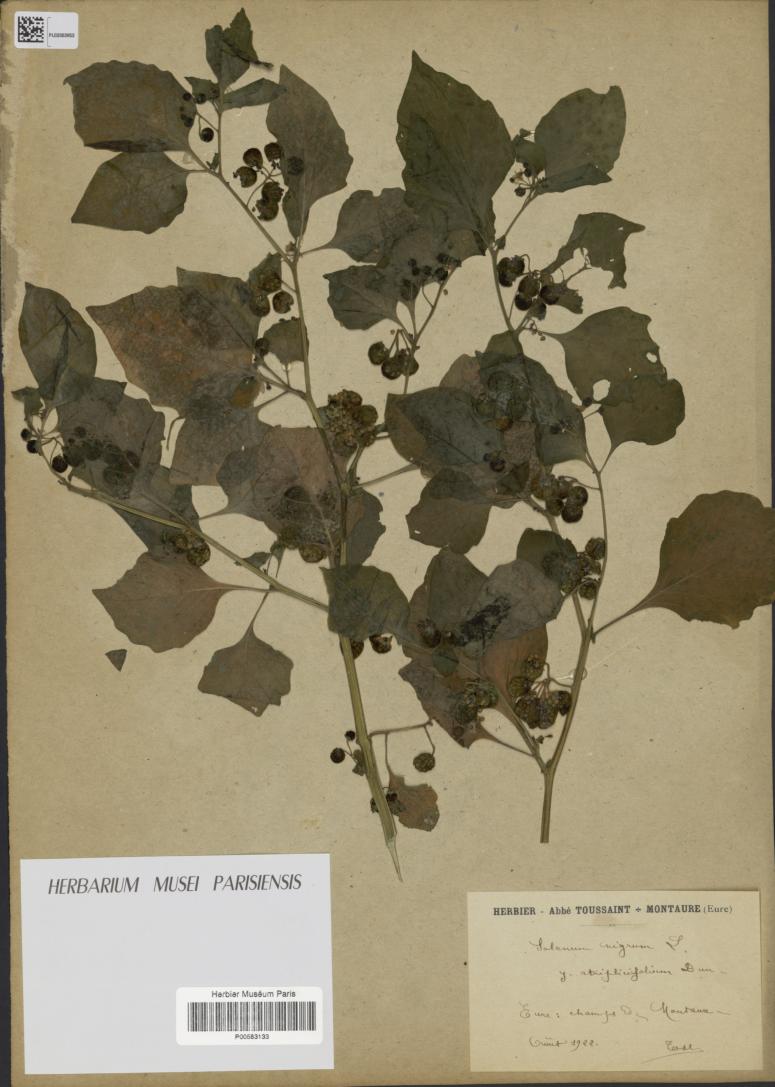 HERBARIUM MUSEI PARISIENSIS
Herbier Muséum Paris
P00583133
HERBIER - Abbé TOUSSAINT ÷ MONTAURE (Eure)
Solanum nigrum L.
γ. atriplicifolium Dun -
Eure : champs de Montaure -
Août 1922.